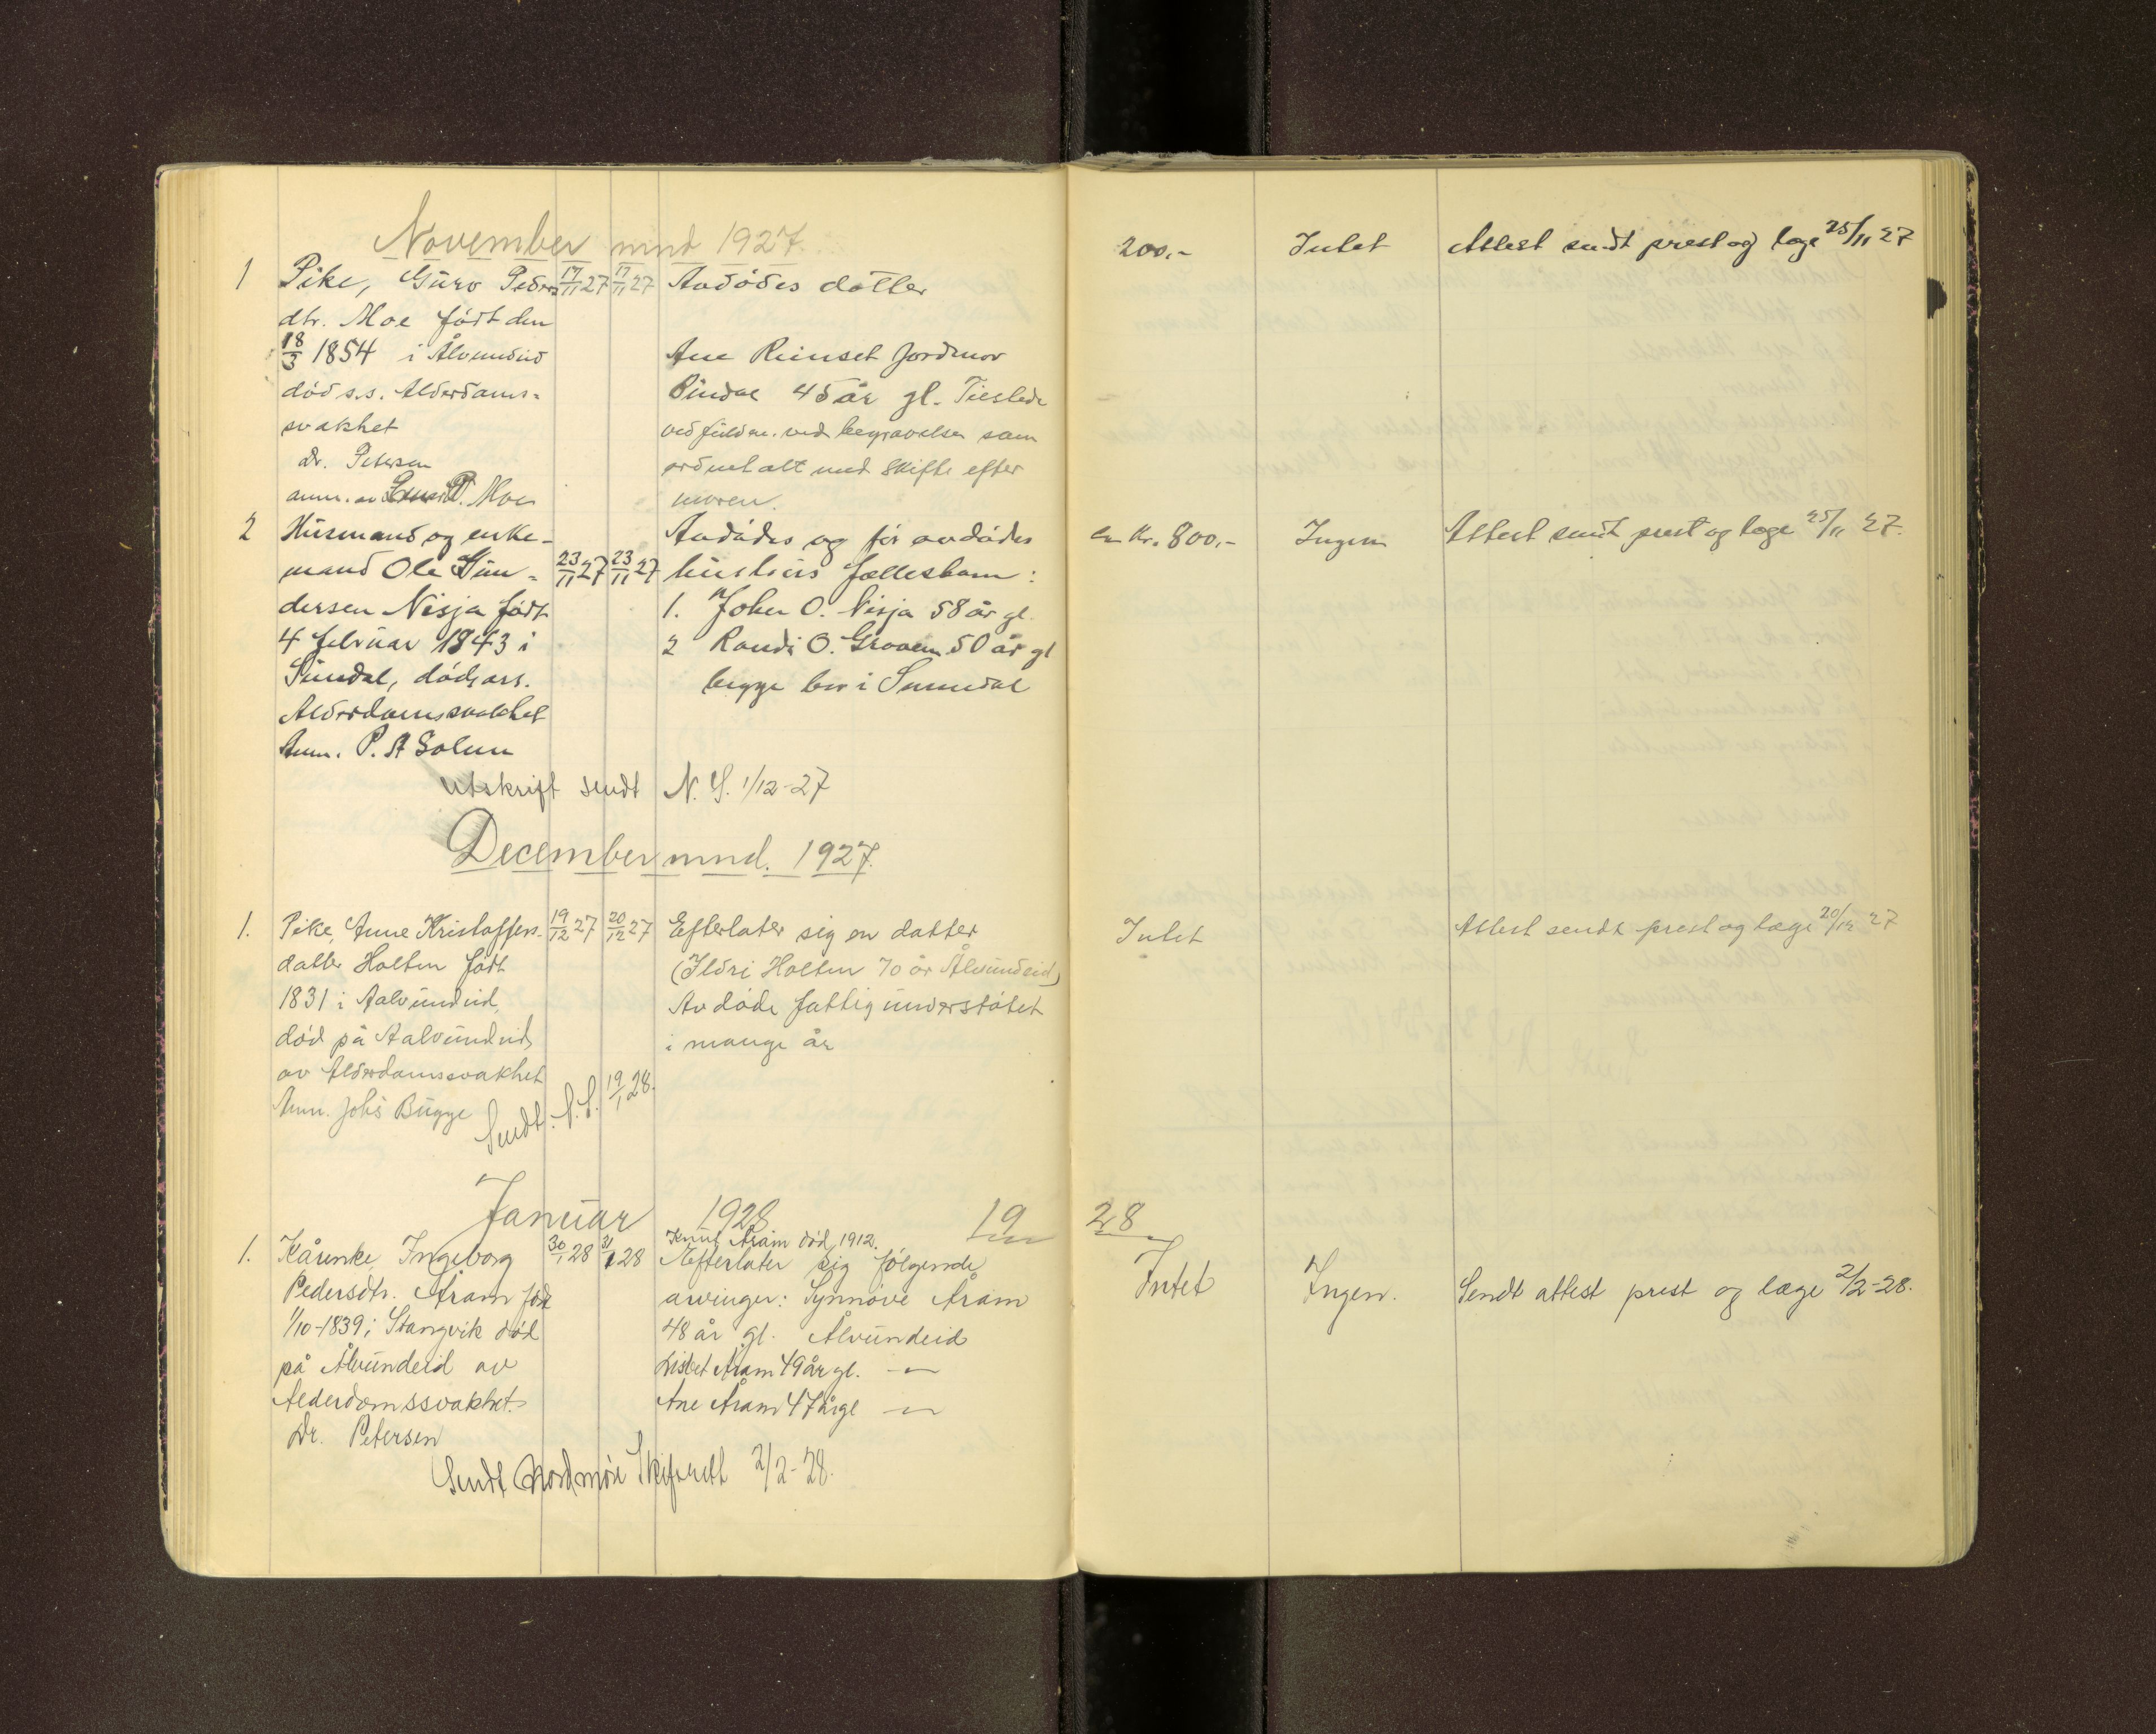 November mnd 1927.
1 Pike, Guro Peders 17/11 27 17/11 27 Avdødes datter 200,- Intet Attest sendt prest og læge 25/11 27
dtr. Moe født den
18/3 1854 i Ålvundeid Ane Rinset Jordmor
død s.s. Alderdoms- Rindal 45 år gl. Tilstede
svakhet ved begravelsen som
Dr. Petersen ordnet alt med skifte efter
anm. av P. Moe moren.
2 Husmand og enke- Avdødes og før avdødes ca Kr. 800,- Ingen Attest sendt prest og læge 25/11 27.
mand Ole Gun- 23/11 27 23/11 27 hustrus fællesbarn:
dersen Nisja født 1. John O. Nisja 58 år gl.
4 februar 1843 i 2 Randi O. Grøvem 50 år gl
Sundal, død s.
Alderdomssvakhet begge bor i Sunndal
Anm. P. A Solem
Utskrift sendt N. S. 1/12-27
December mnd. 1927.
1. Pike, Anne Kristoffers- 19/12 27 20/12 27 Efterlater sig en datter Intet Attest sendt prest og læge 20/12 27
datter Holten født (Ildri Holten 70 år Ålvundeid)
1831 i Aalvundeid, Avdøde fattigunderstøtet
død på Aalvundeid i mange år
av Alderdomssvakhet
Anm. Johs Bugge Sendt. N.S. 19/1 28.
Januar 1928 19 28
Knut Aram død 1912.
1. Kårenke, Ingeborg 30/1 28 31/1 28 Efterlater sig følgende Intet Ingen. Sendt attest prest og læge 2/2-28.
Pedersdtr. Åram født arvinger: Synnøve Åram
1/10-1839 i Stangvik død 48 år gl. Ålvundeid
på Ålvundeid av Lisbet Åram 49 år gl. —"—
Alderdomssvakhet. Ane Åram 47 år gl —"—
Dr. Petersen
Sendt Nordmøre Skifterett 2/2-28.